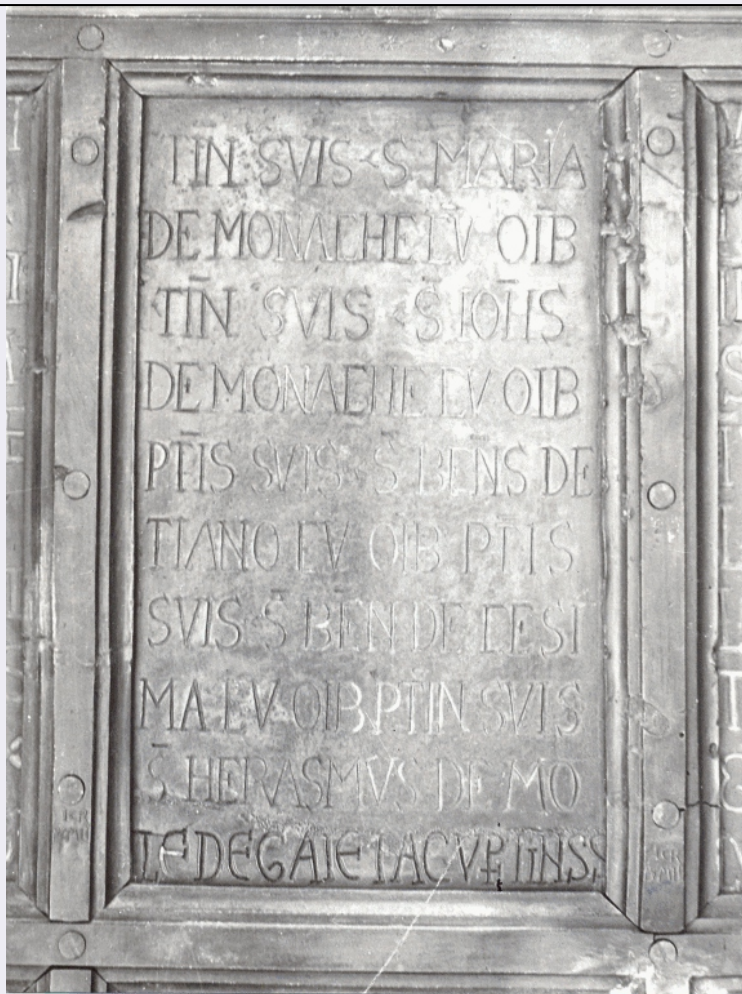 TIN SVIS S MARIA
DE MONACHE CV OIB
TIN SVIS S IOHS
DE MONACHE CV OIB
PTIS SVIS S BENS DE
TIANO CV OIB PTIS
SVIS S BEN DE CESI
MA CV OIB PTIN SVIS
S HERASMVS DE MO